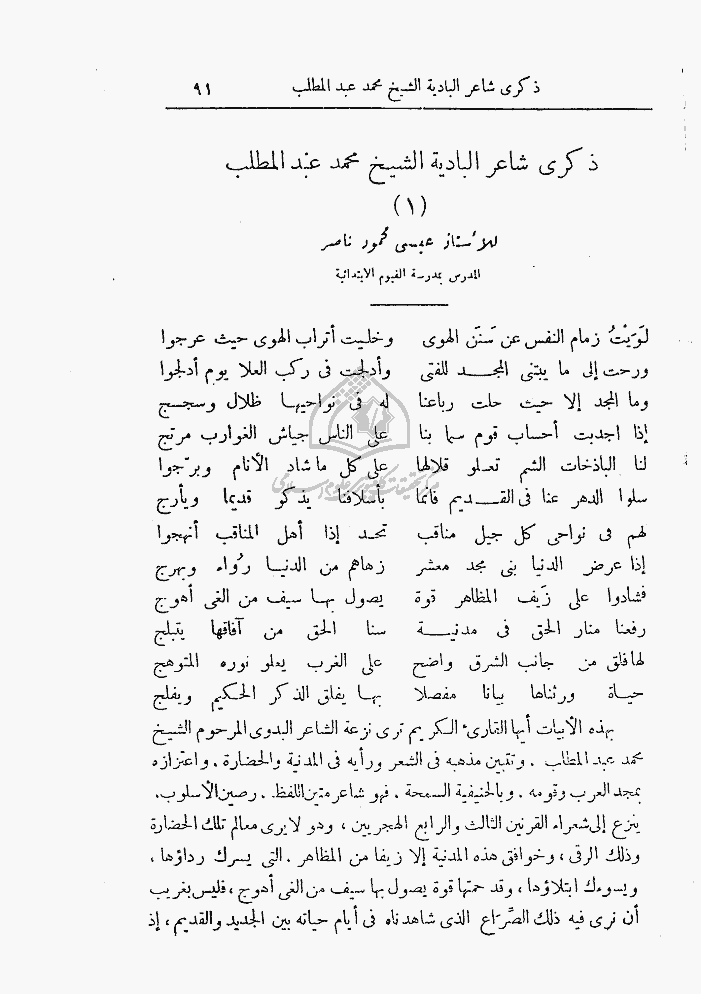 ذكرى شاعر البادية الشيخ محمد عبد المطلب ٩١
ذكرى شاعر البادية الشيخ محمد عبد المطلب
(١)
للأستاذ عيسى محمود ناصر
المدرس بمدرسة الفيوم الابتدائية
لَوَيْتُ زمام النفس عن سَنَن الهوى وخليت أتراب الهوى حيث عرجوا
ورحت إلى ما يبتنى المجد للفتى وأدلجت فى ركب العلا يوم أدلجوا
وما المجد إلا حيث حلت رباعنا له فى نواحيها ظلال وسجسج
إذا اجدبت أحساب قوم سما بنا على الناس جياش الغوارب مرتج
لنا الباذخات الشم تعلو قلالها على كل ما شاد الأنام وبرّجوا
سلوا الدهر عنا فى القديم فانما بأسلافنا يذكو قديما ويأرج
لهم فى نواحى كل جيل مناقب تحد إذا أهل المناقب أنهجوا
إذا عرض الدنيا بنى مجد معشر زهاهم من الدنيا رُواء وبهرج
فشادوا على زَيف المظاهر قوة يصول بها سيف من الغى أهوج
رفعنا منار الحق فى مدنية سنا الحق من آفاقها يتبلج
لها فلق من جانب الشرق واضح على الغرب يعلو نوره المتوهج
حياة ورثناها بيانا مفصلا بها يفلق الذكر الحكيم ويفلج
بهذه الأبيات أيها القارئ الكريم ترى نزعة الشاعر البدوى المرحوم الشيخ
محمد عبد المطلب . وتتبين مذهبه فى الشعر ورأيه فى المدنية والحضارة . واعتزازه
بمجد العرب وقومه . وبالحنيفية السمحة . فهو شاعر متين اللفظ . رصين الأسلوب.
ينزع إلى شعراء القرنين الثالث والرابع الهجريين ، وهو لا يرى معالم تلك الحضارة
وذلك الرقى ، وخوافق هذه المدنية إلا زيفا من المظاهر . التى يسرك رداؤها ،
ويسوءك ابتلاؤها ، وقد حمتها قوة يصول بها سيف من الغى أهوج ، فليس بغريب
أن نرى فيه ذلك الصِّرَاع الذى شاهدناه فى أيام حياته بين الجديد والقديم ، إذ